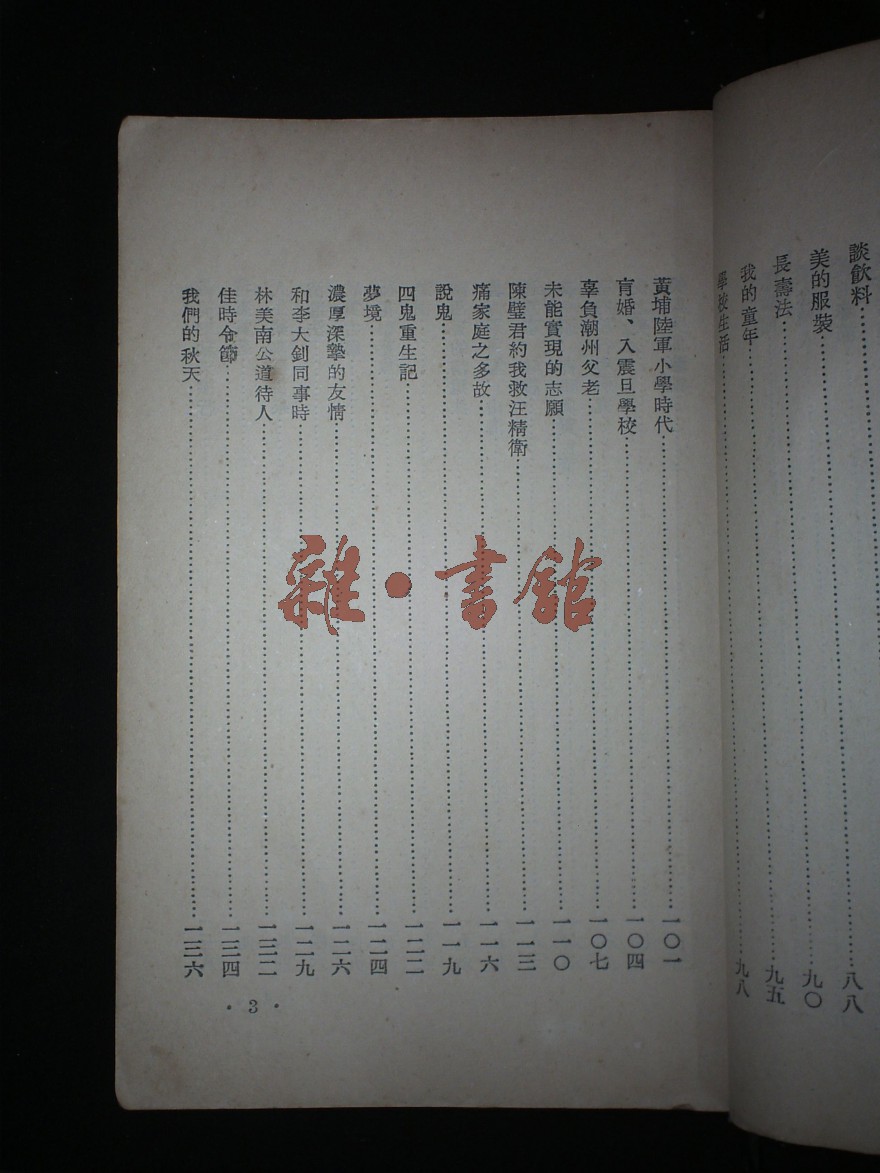 談飲料……八八
美的服裝……九〇
長壽法……九五
我的童年
學校生活……九八
黃埔陸軍小學時代……一〇一
肓婚、入震旦學校……一〇四
辜負潮州父老……一〇七
未能實現的志願……一一〇
陳璧君約我救汪精衛……一一三
痛家庭之多故……一一六
說鬼……一一九
四鬼重生記……一二二
夢境……一二四
濃厚深摯的友情……一二六
和李大釗同事時……一二九
林美南公道待人……一三二
佳時令節……一三四
我們的秋天……一三六
· 3 ·
雜·書館